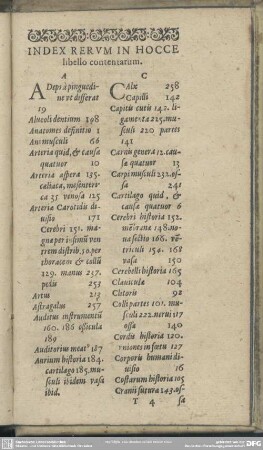 INDEX RERVM IN HOCCE
libello contentarum.
A
ADeps à pinguedi-
ne vt differat
19
Alueoli dentium 198
Anatomes definitio 1
Ani musculi 66
Arteria quid, & causa
quatuor 10
Arteria aspera 135.
caliaca, mesenteri-
ca 35 venosa 125
Arteriæ Carotidis di-
uisio 171
Cerebri 151. ma-
gnæ per
trem distrib, 50. per
thoracem & collũ
129. manus 237.
pedis 253
Artus 213
Astragalus 257
Auditus instrumentũ
160. 186 ossicula
189
Auditorius meat9 187
Aurium historia 184.
cartilago 185. mu-
sculi ibidem vasa
ibid.
C
CAlx 258
Capilli 142
Capitis cutis 142. li-
gamenta 225. mu-
sculi 220 partes
141
Carnis genera 12. cau-
sa quatuor 13
Carpi musculi 232. os-
sa 241
Cartilago quid, &
causa quatuor 6
Cerebri historia 152.
mẽbrane 148. no-
na sectio 166. vẽ-
triculi 154. 168
vasa 150
Cerebelli historia 165
Clauicula 104
Clitoris 98
Colli partes 101. mu-
sculi 222. nerui 117
ossa 140
Cordis historia 120.
vniones in foetu 127
Corporis humani di-
uisio 16
Costarum historia 105
Cranii sutura 143. os-
T 4 sa